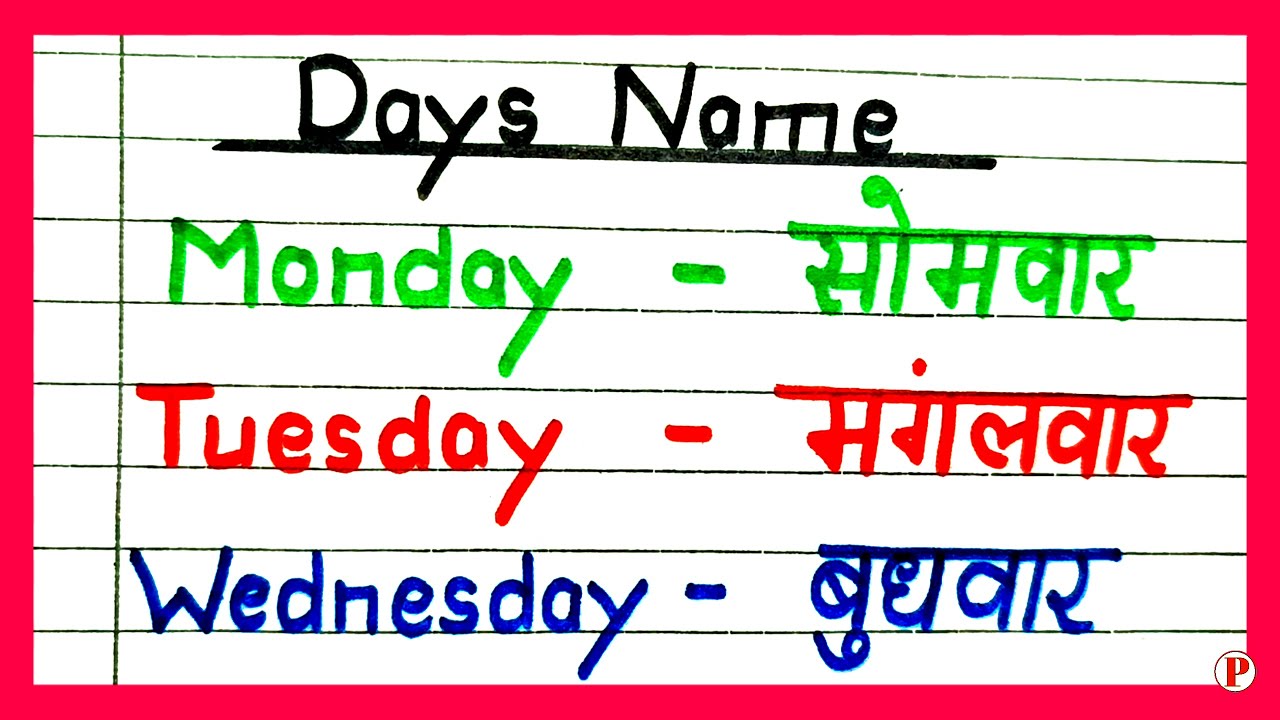 Days Name
Monday - सोमवार
Tuesday - मगंलवार
Wednesday - बुधवार
P